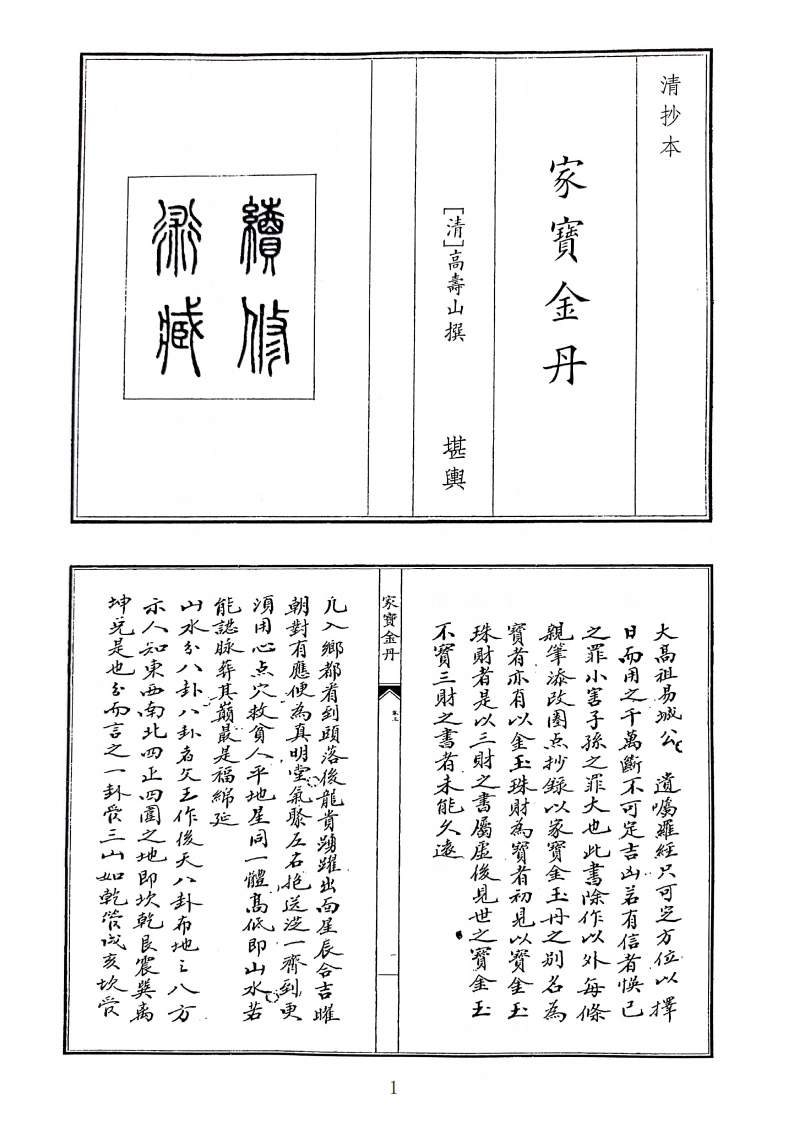 清抄本
家寶金丹
[清]高壽山撰 堪輿
續修
術藏
大高祖易城公 遺囑羅經只可定方位以擇
日而用之千萬斷不可定吉凶若有信者悞己
之罪小害子孫之罪大也此書除作以外每條
親筆添改圈点抄錄以家寶金玉丹之別名為
寶者亦有以金玉珠財為寶者初見以寶金玉
珠財者是以三財之書屬虛後見世之寶金玉
不寶三財之書者未能久遠
家寶金丹
卷上
一
凡入鄉都看到頭落後龍貴踴躍出面星辰合吉曜
朝對有應便為真明堂氣聚左右抱送從一齊到更
須用心点穴救貧人平地星同一體高低即山水若
能認脉葬其巔最是福綿延
山水分八卦八卦者文王作後天八卦布地之八方
示人知東西南北四正四圍之地即坎乾艮震巽离
坤兌是也分而言之一卦管三山如乾管戌亥坎管
1